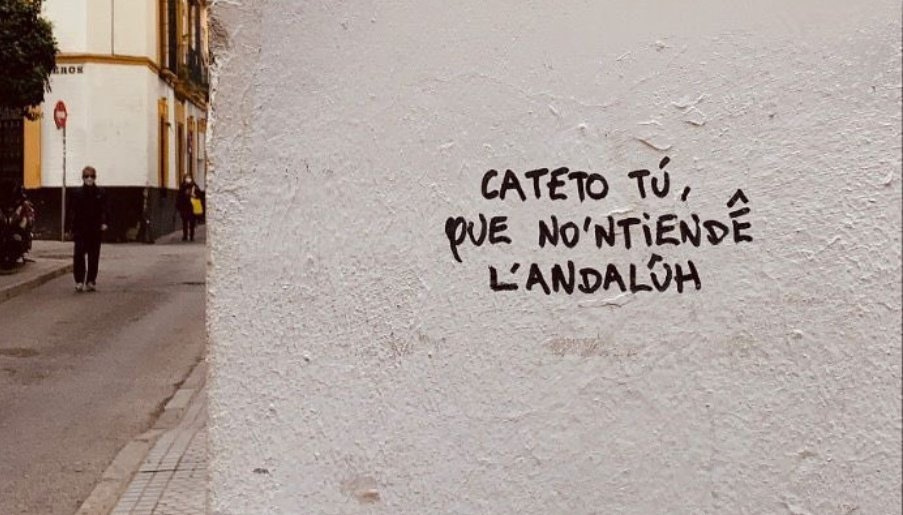 EROS
CATETO TÚ,
QUE NO'NTIENDÊ
L'ANDALÛH